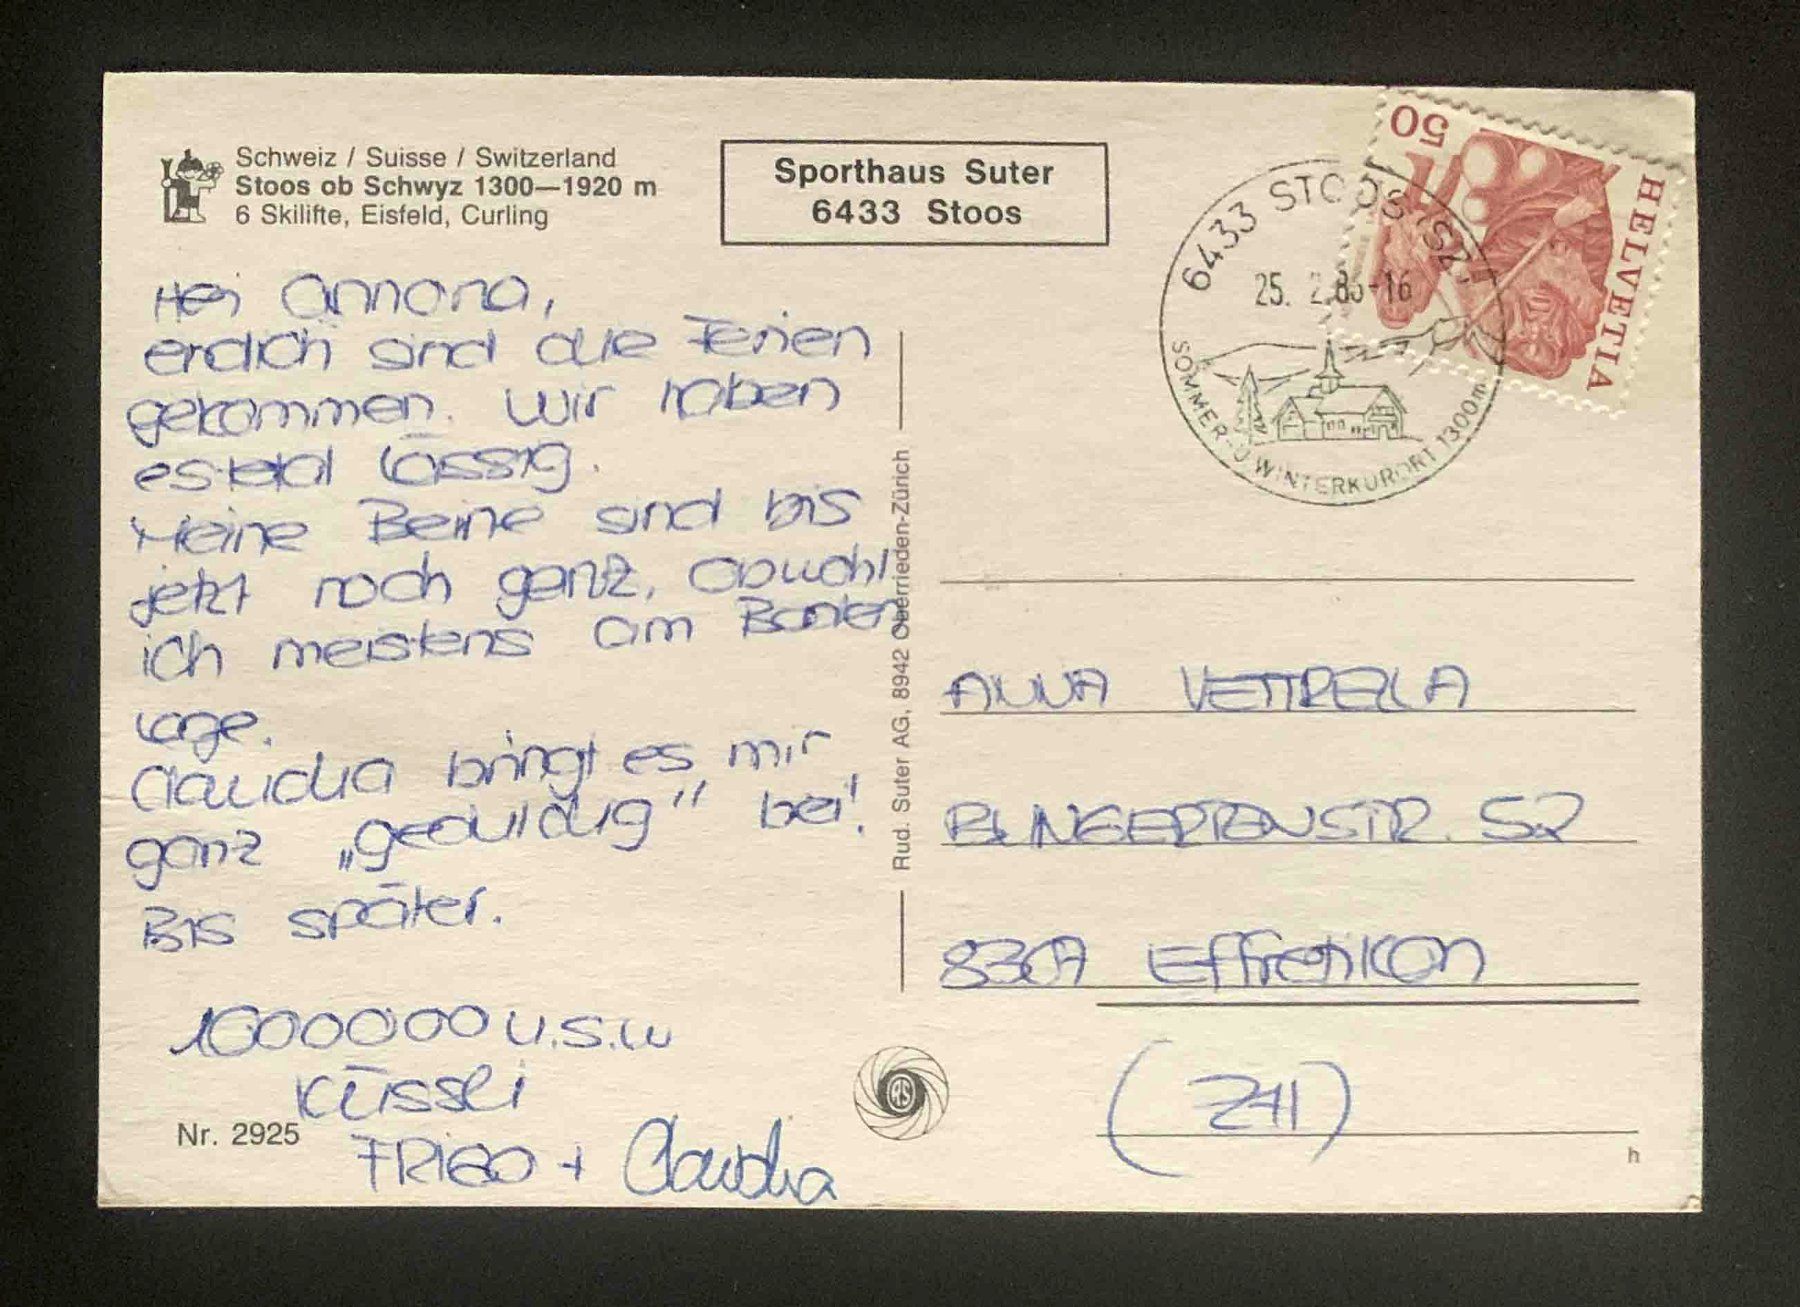 Schweiz / Suisse / Switzerland
Stoos ob Schwyz 1300—1920 m
6 Skilifte, Eisfeld, Curling
Sporthaus Suter
6433 Stoos
Hei
endlich sind die Ferien
gekommen. Wir haben
es total lässig.
Meine Beine sind bis
jetzt noch ganz, obwohl
ich meistens am Boden
lage.
Claudia bringt es mir
ganz „geduldig" bei!
Bis später.
1000000 U.S.W
Küssli
+ Claudia
Nr. 2925
Rud. Suter AG, 8942 Oberrieden-Zürich
RS
50
HELVETIA
6433 STOOS (SZ)
25. 2. -16
SOMMER- U. WINTERKURORT 1300m
ANNA
STR. 52
8307 Effretikon
(ZH)
h